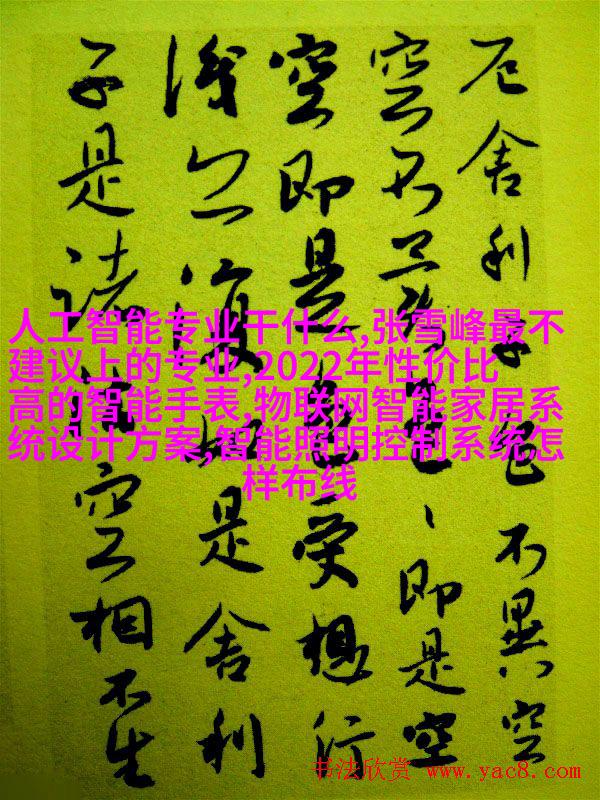 厄舍利子色不異空
空不異色、即是空
空即是色受想行
識亦復如是舍利
子是諸法空相不生
人工智能专业干什么,张雪峰最不
建议上的专业,2022年性价比
高的智能手表,物联网智能家居系
统设计方案,智能照明控制系统怎
样布线
书法欣赏 www.yac8.com